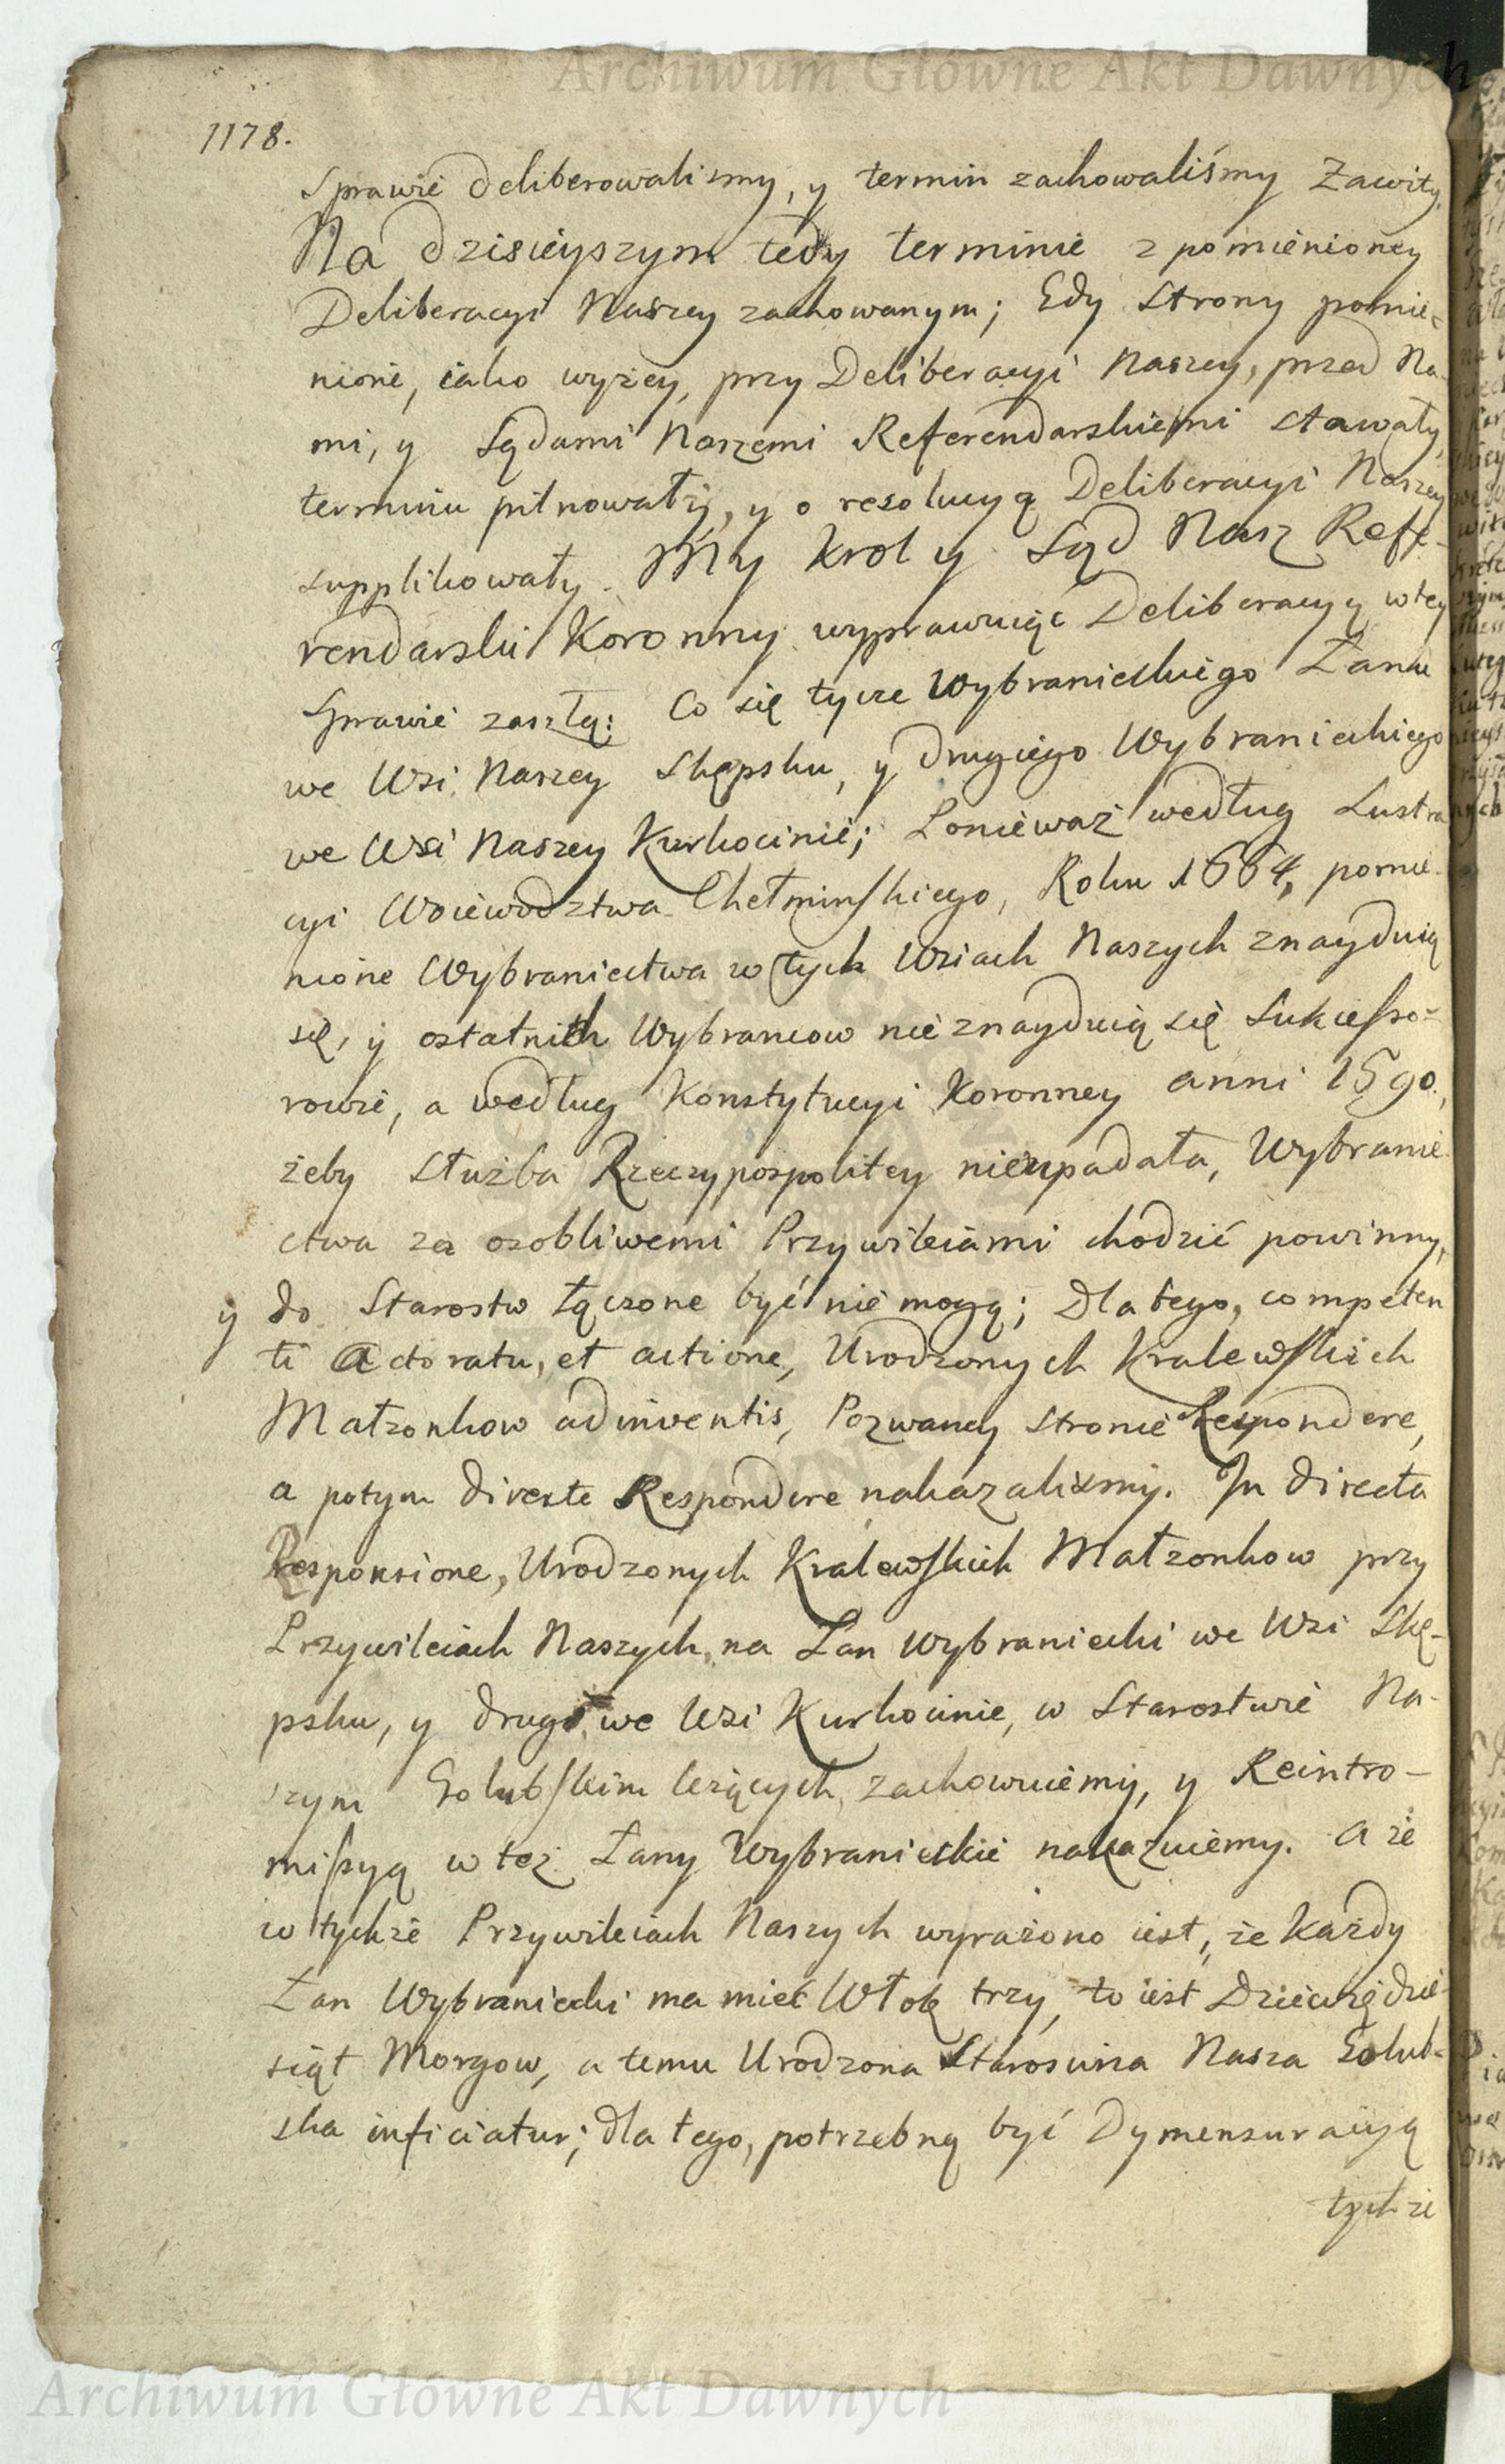 Archiwum Główne Akt Dawnych
1178.
Sprawie deliberowalismy, y termin zachowaliśmy Zawity,
Na dzisieyszym tedy terminie z pomienioney
Deliberacyi Naszey zachowanym; Gdy Strony pomie=
nione, iako wyżey, przy Deliberacyi Naszey, przed Na-
mi, y Sądami Naszemi Referendarskiemi stawały,
terminu pilnowały, y o resolucyą Deliberacyi Naszey
supplikowały. My Krol y Sąd Nasz Refe-
rendarski Koronny wyprawuiąc Deliberacyą w tey
Sprawie zaszłą: Co się tycze Wybranieckiego Łanu
we Wsi Naszey Skępsku, y drugiego Wybranieckiego
we Wsi Naszey Kurkocinie; Ponieważ według Lustra
cyi Woiewodztwa Chełminskiego, Roku 1664, pomie-
nione Wybraniectwa w tych Wsiach Naszych znayduią
się, y ostatnich Wybrancow nie znayduią się Sukcesso=
rowie, a według Konstytucyi Koronney anni 1590.,
żeby Służba Rzeczypospolitey nieupadała, Wybranie
ctwa za osobliwemi Przywileiami chodzić powinny,
y do Starostw łączone być nie mogą; Dla tego, competen
ti actoratu, et actione, Urodzonych Kralewskich
Małzonkow adinventis, Pozwaney Stronie Respondere,
a potym directe Respondere nakazalismy. In directa
Responsione, Urodzonych Kralewskich Małzonkow przy
Przywileiach Naszych, na Łan Wybraniecki we Wsi Skę-
psku, y drugi we Wsi Kurkocinie, w Starostwie Na-
szym Golubskim leżących, zachowuiemy, y Reintro-
missyą w też Łany Wybranieckie nakazuiemy. A że
w tychże Przywileiach Naszych wyrażono iest, że każdy
Łan Wybraniecki ma mieć Włok trzy, to iest Dziewiędzie-
siąt Morgow, a temu Urodzona Starościna Nasza Golub=
ska inficiatur; dla tego, potrzebną być Dymensuracyą
tychże
Archiwum Główne Akt Dawnych